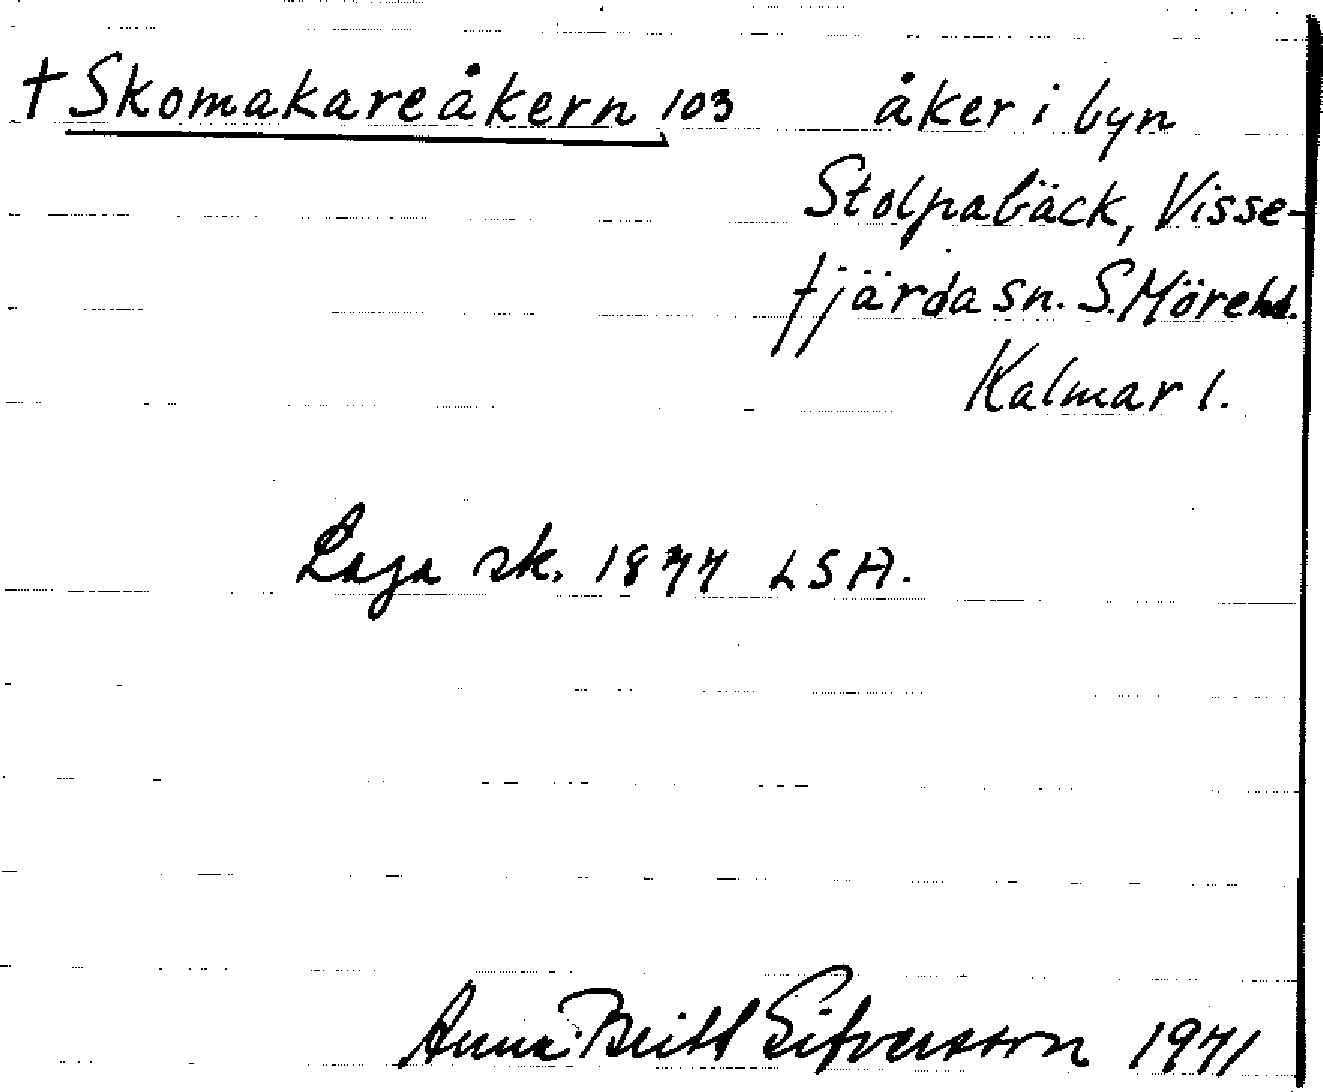 † Skomakareåkern 103 åker i byn
Stolpabäck, Visse-
fjärda sn. S. Möre hd.
Kalmar l.
Laga sk. 1877 LSA.
Anna-Britt Sifversson 1971